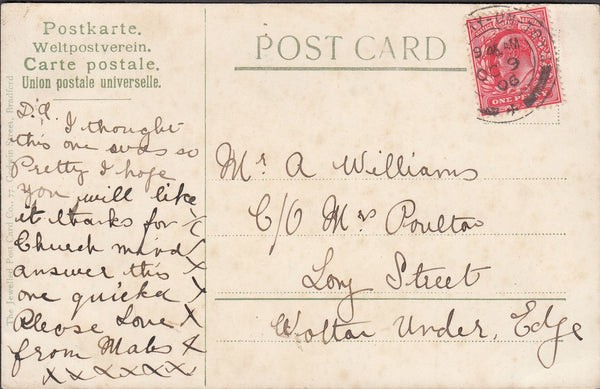 Postkarte.
Weltpostverein.
Carte postale.
Union postale universelle.
POST CARD
9 45 AM
OC 9
06
ONE PENNY
D.A. I thought
this one was so
Pretty I hope
you will like
it thanks for X
Church mind X
answer this X
one quicka X
Please Love X
from Mabs X
X X X X X X
Mr A Williams
C/O Mrs Poulton
Long Street
Wotton Under, Edge
The Jewelled Post Card Co., 77, Street, Bradford